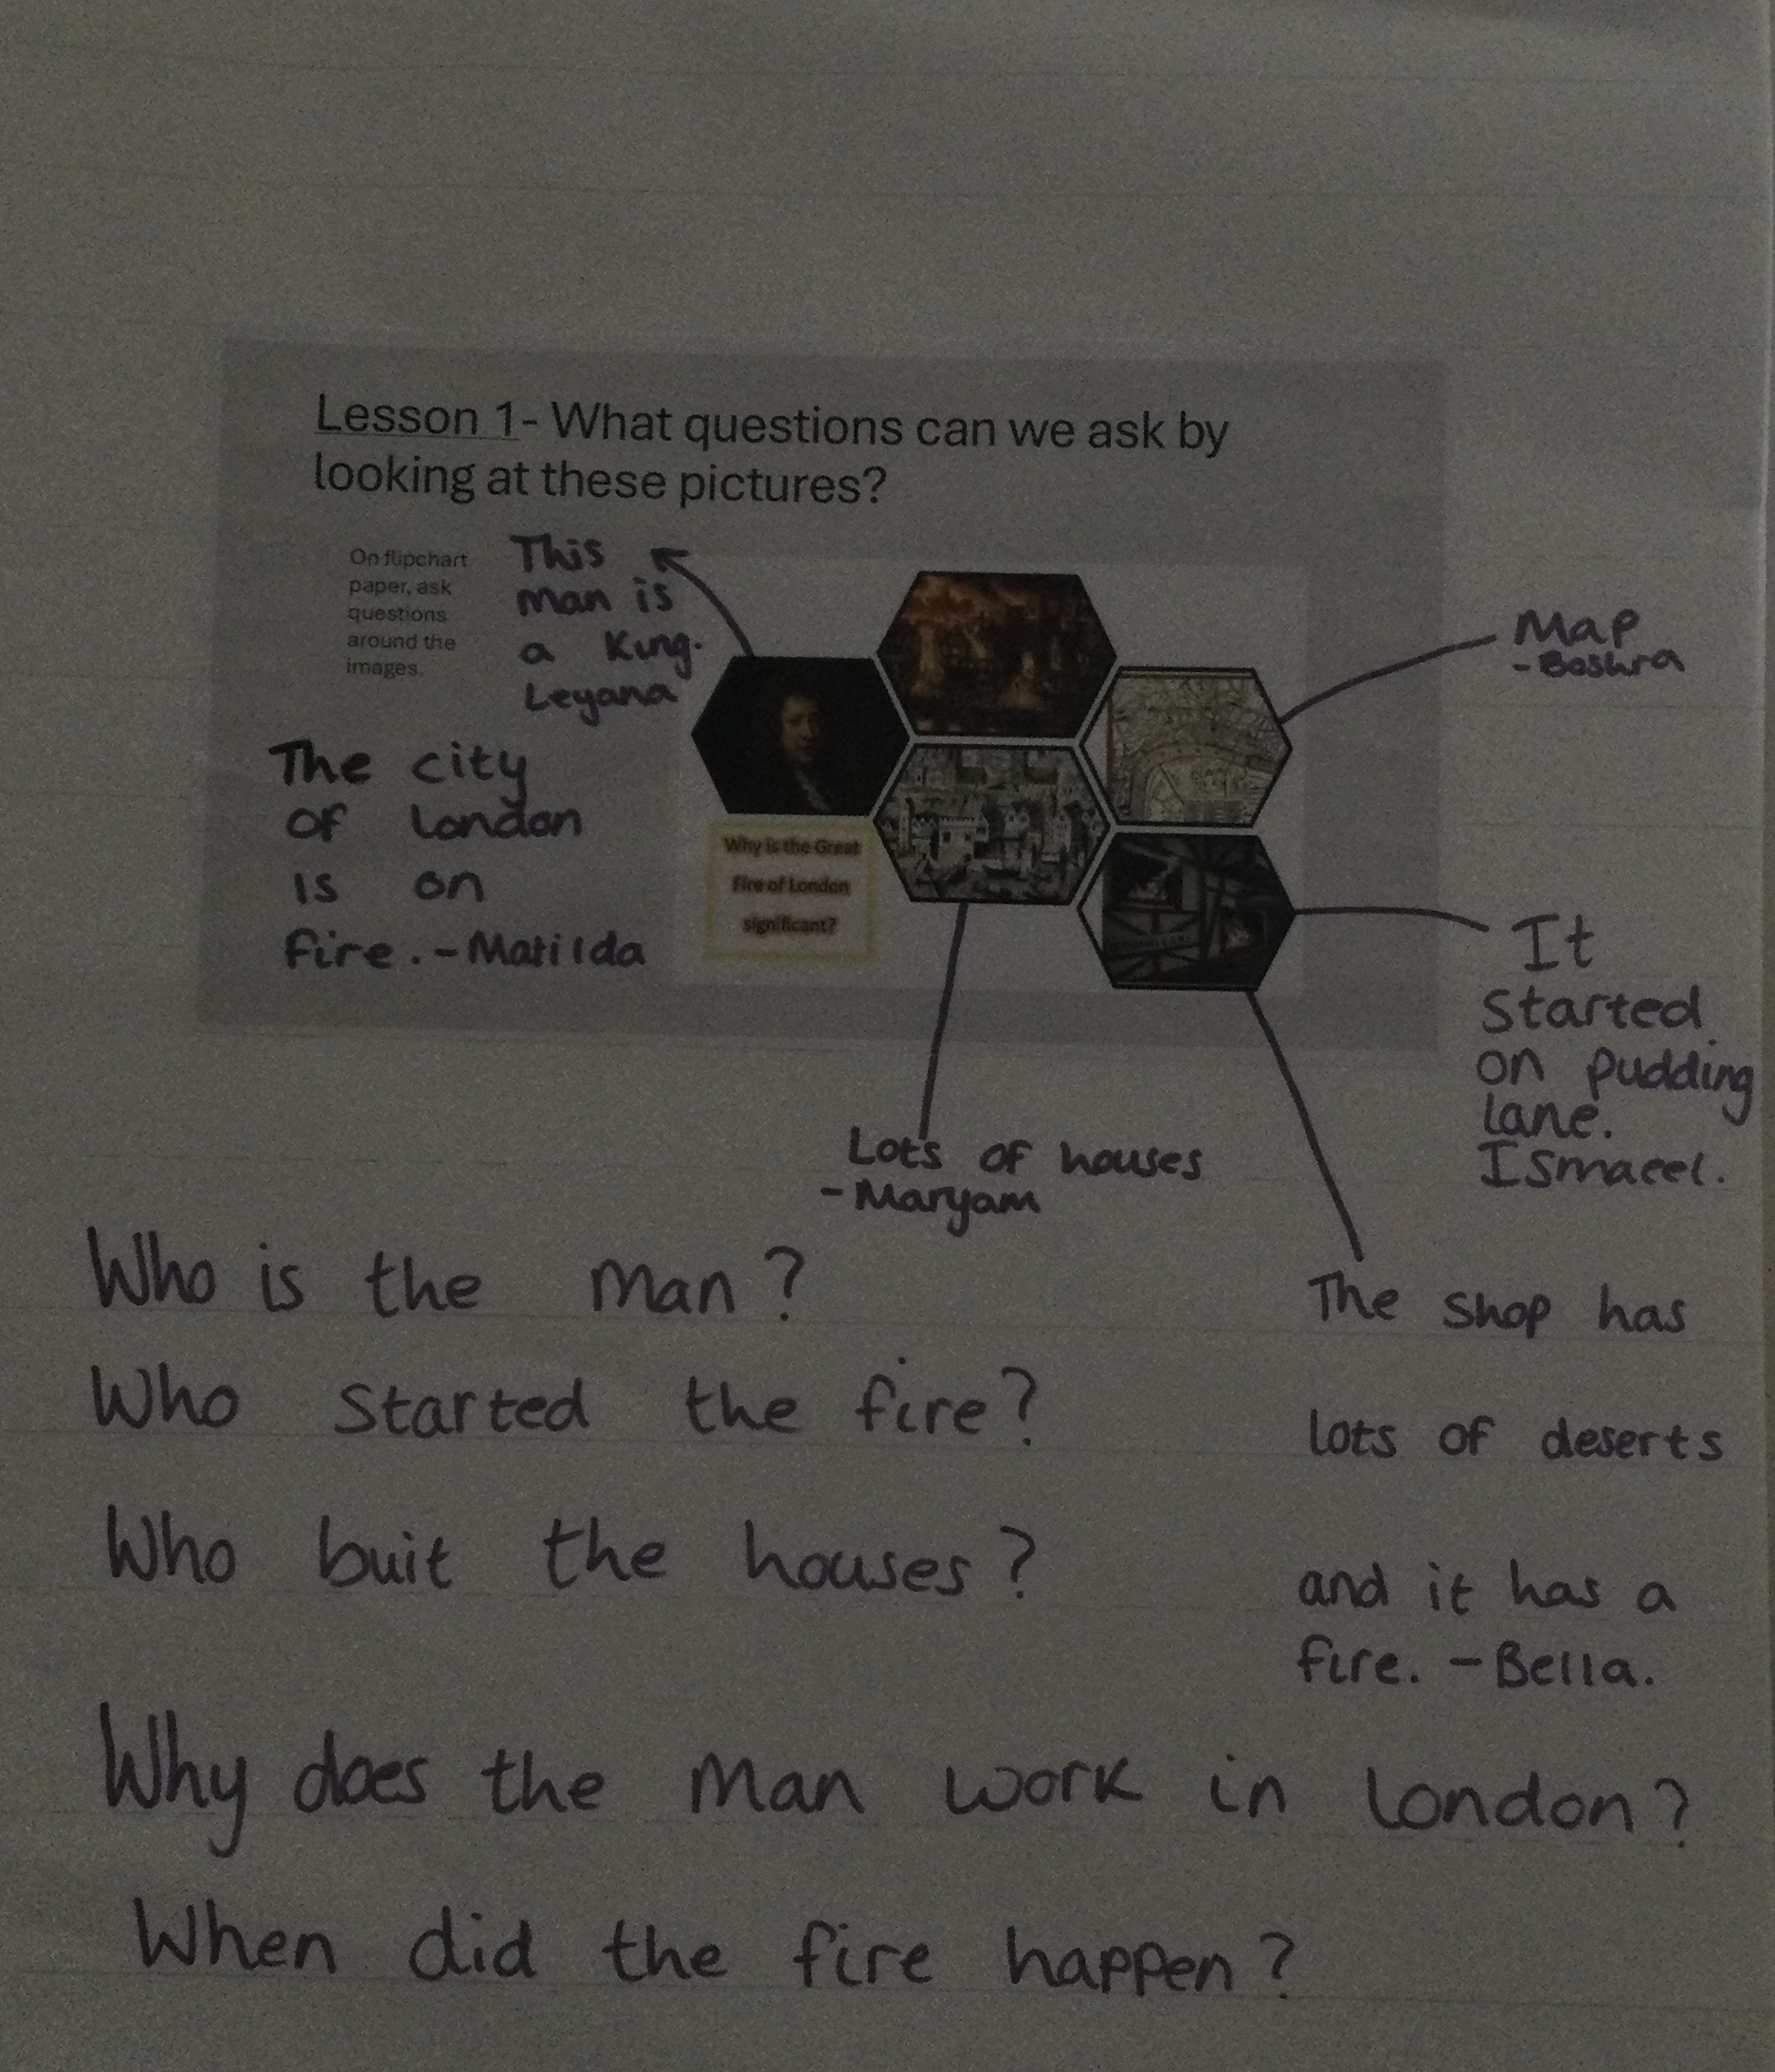 Lesson 1- What questions can we ask by
looking at these pictures?
On flipchart
paper, ask
questions
around the
images.
This
man is
a King.
Leyana
The city
of London
is on
fire. - Matilda
Why is the Great
Fire of London
significant?
Map
- Boshra
It
started
on pudding
lane.
Ismaeel.
Lots of houses
- Maryam
The shop has
lots of deserts
and it has a
fire. - Bella.
Who is the man?
Who started the fire?
Who buit the houses?
Why does the man work in London?
When did the fire happen?